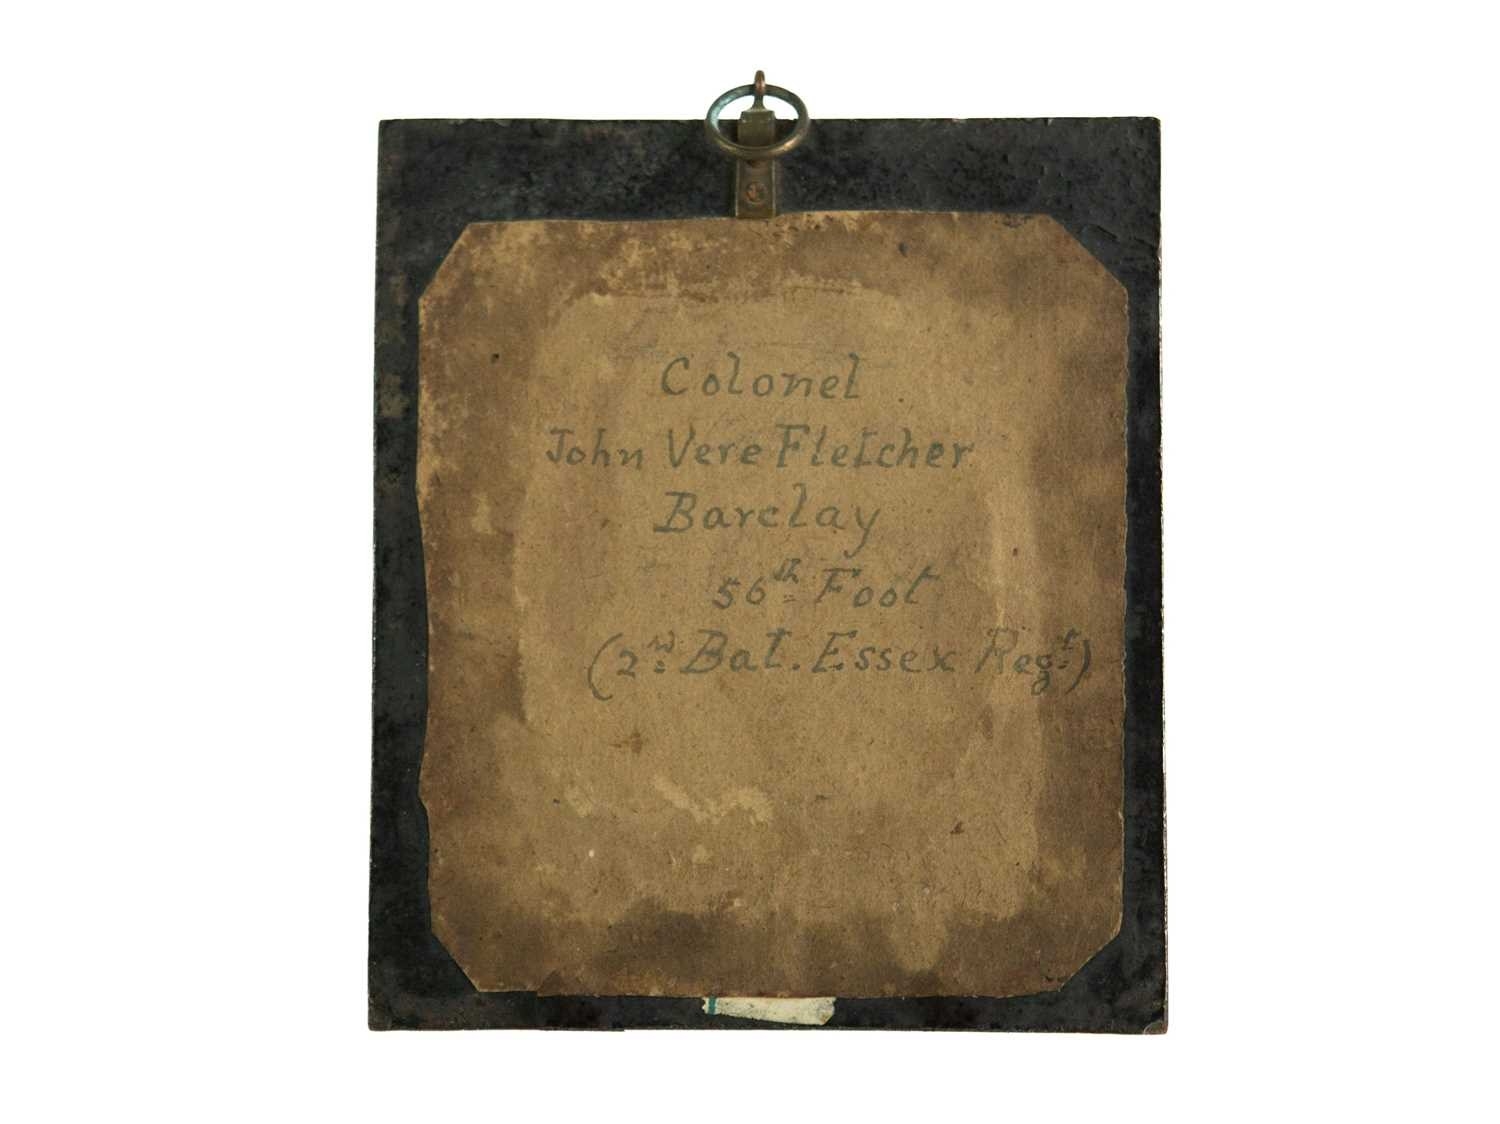 Colonel
John Vere Fletcher
Barclay
56th Foot
(2nd Bat. Essex Regt)